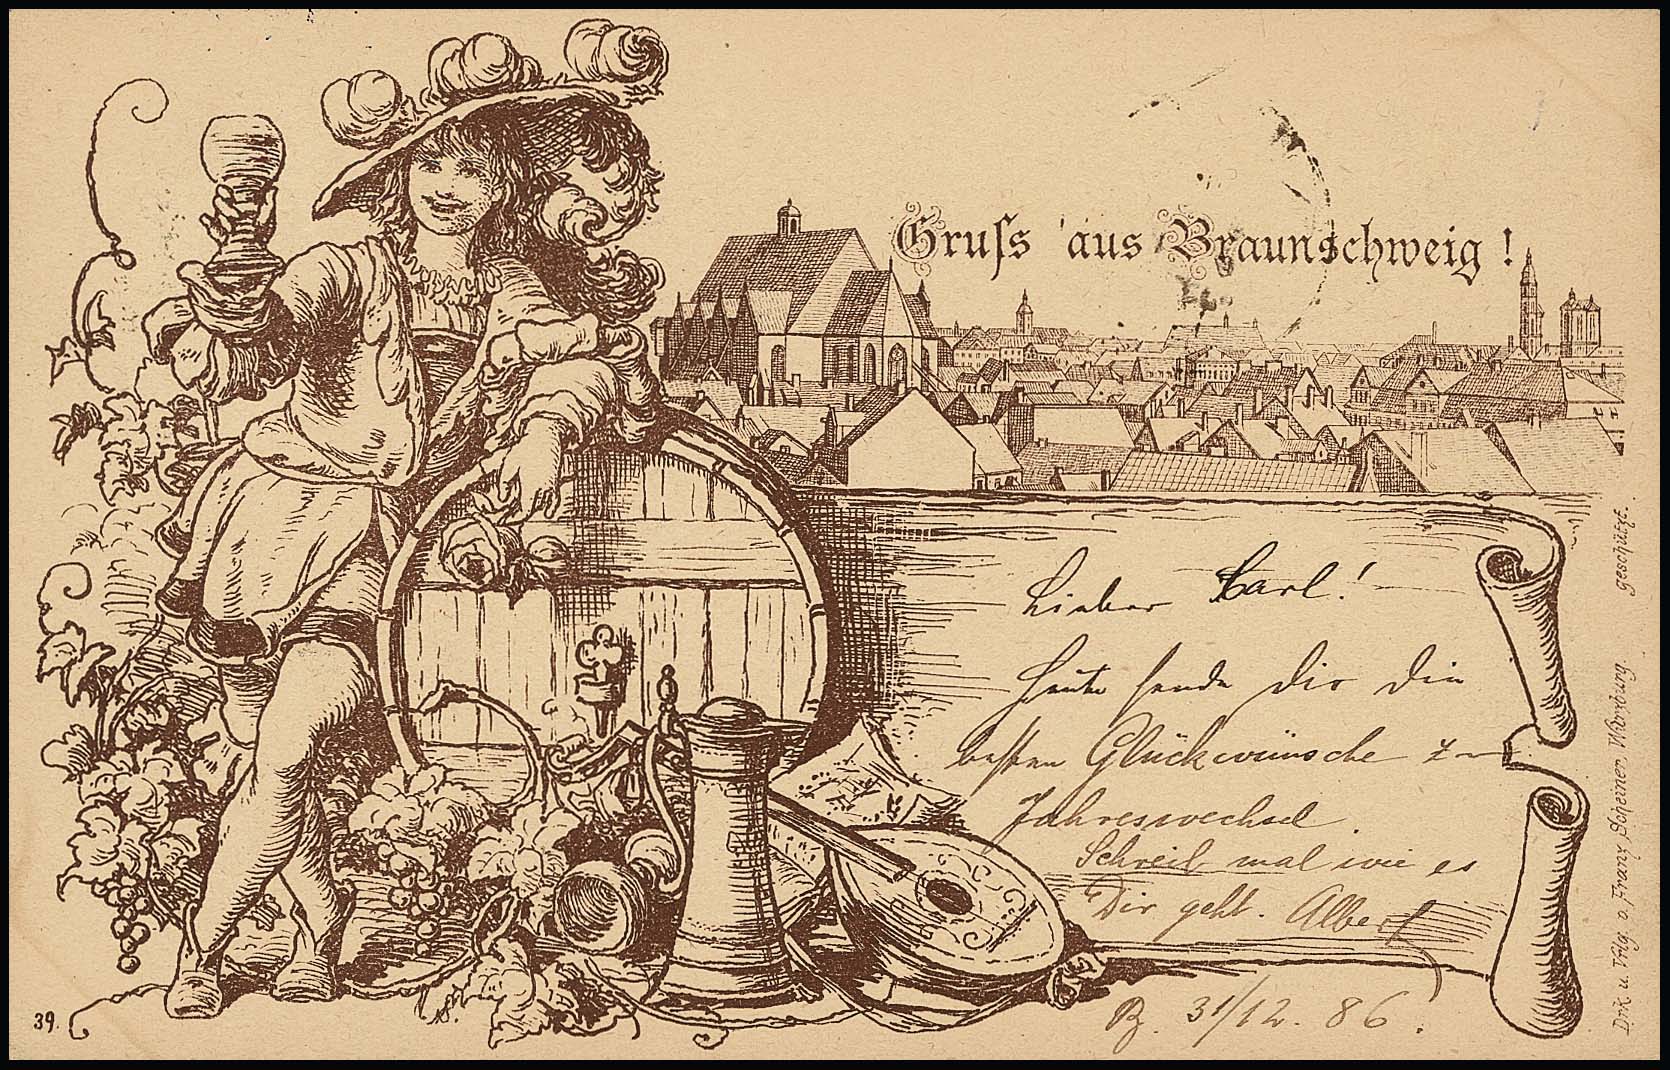 Gruſs aus Braunschweig !
Lieber Carl!
Heute sende Dir die
besten Glückwünsche z
Jahreswechsel.
Schreib mal wie es
Dir geht. Albert
B. 31/12. 86.
39.
Drck u. Vrlg. v. Franz Scheiner, Würzburg. geschützt.